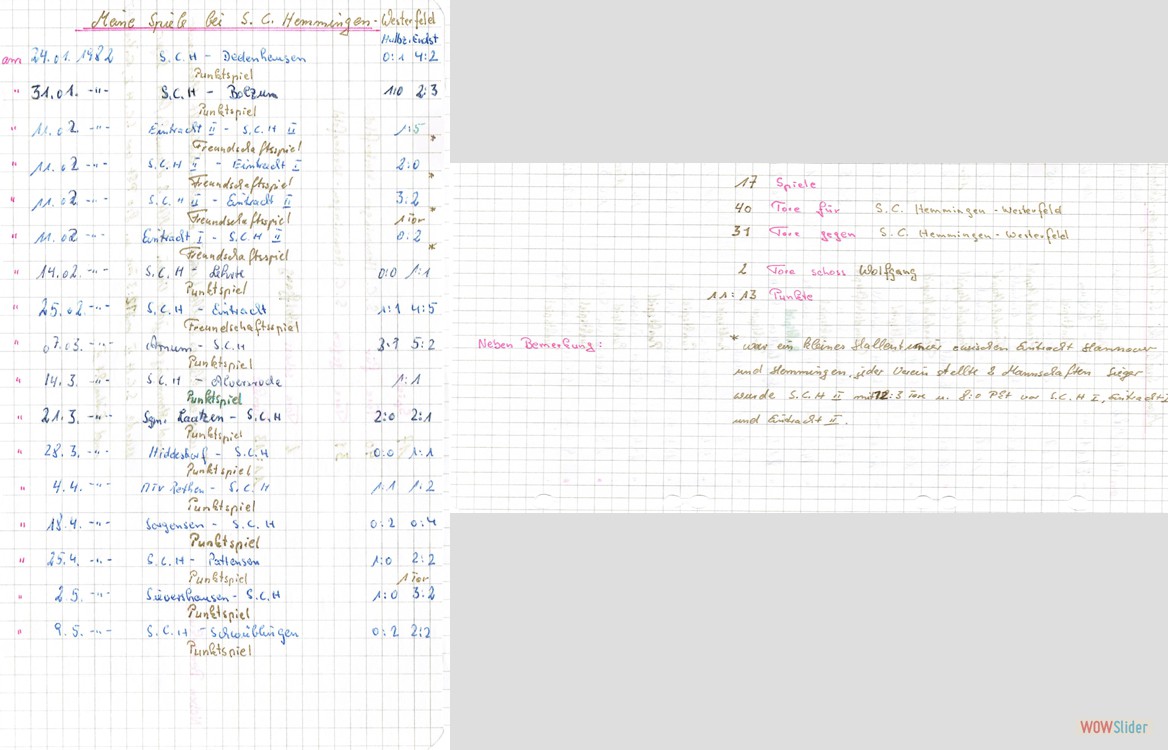 Meine Spiele bei S.C. Hemmingen-Westerfeld
Halbz. Endst
am 24.01.1982 S.C.H - Dedenhausen 0:1 4:2
Punktspiel
" 31.01. -"- S.C.H - Bolzum 1:0 2:3
Punktspiel
" 11.02. -"- Eintracht II - S.C.H II 1:5
Freundschaftsspiel *
" 11.02 -"- S.C.H II - Eintracht I 2:0
Freundschaftsspiel *
" 11.02 -"- S.C.H II - Eintracht II 3:2
Freundschaftsspiel 1 Tor *
" 11.02 -"- Eintracht I - S.C.H II 0:2
Freundschaftsspiel *
" 14.02. -"- S.C.H - Lehrte 0:0 1:1
Punktspiel
" 25.02. -"- S.C.H - Eintracht 1:1 4:5
Freundschaftsspiel
" 07.03. -"- Arnum - S.C.H 5:2
Punktspiel
" 14.3. -"- S.C.H - Alvesrode 1:1
Punktspiel
" 21.3. -"- Sgm. Laatzen - S.C.H 2:0 2:1
Punktspiel
" 28.3. -"- Hiddestorf - S.C.H 0:0 1:1
Punktspiel
" 4.4. -"- MTV Rethen - S.C.H 1:1 1:2
Punktspiel
" 18.4. -"- Sorgensen - S.C.H 0:2 0:4
Punktspiel
" 25.4. -"- S.C.H - Pattensen 1:0 2:2
Punktspiel 1 Tor
" 2.5. -"- Sievershausen - S.C.H 1:0 3:2
Punktspiel
" 9.5. -"- S.C.H - Schwüblingen 0:2 2:2
Punktspiel
17 Spiele
40 Tore für S.C. Hemmingen-Westerfeld
31 Tore gegen S.C. Hemmingen-Westerfeld
2 Tore schoss Wolfgang
11:13 Punkte
Neben Bemerkung: * war ein kleines Hallenturnier zwischen Eintracht Hannover
und Hemmingen, jeder Verein stellte 2 Mannschaften Sieger
wurde S.C.H II mit 12:3 Tore u. 8:0 Pkt vor S.C.H I, Eintracht I
und Eintracht II.
WOWSlider